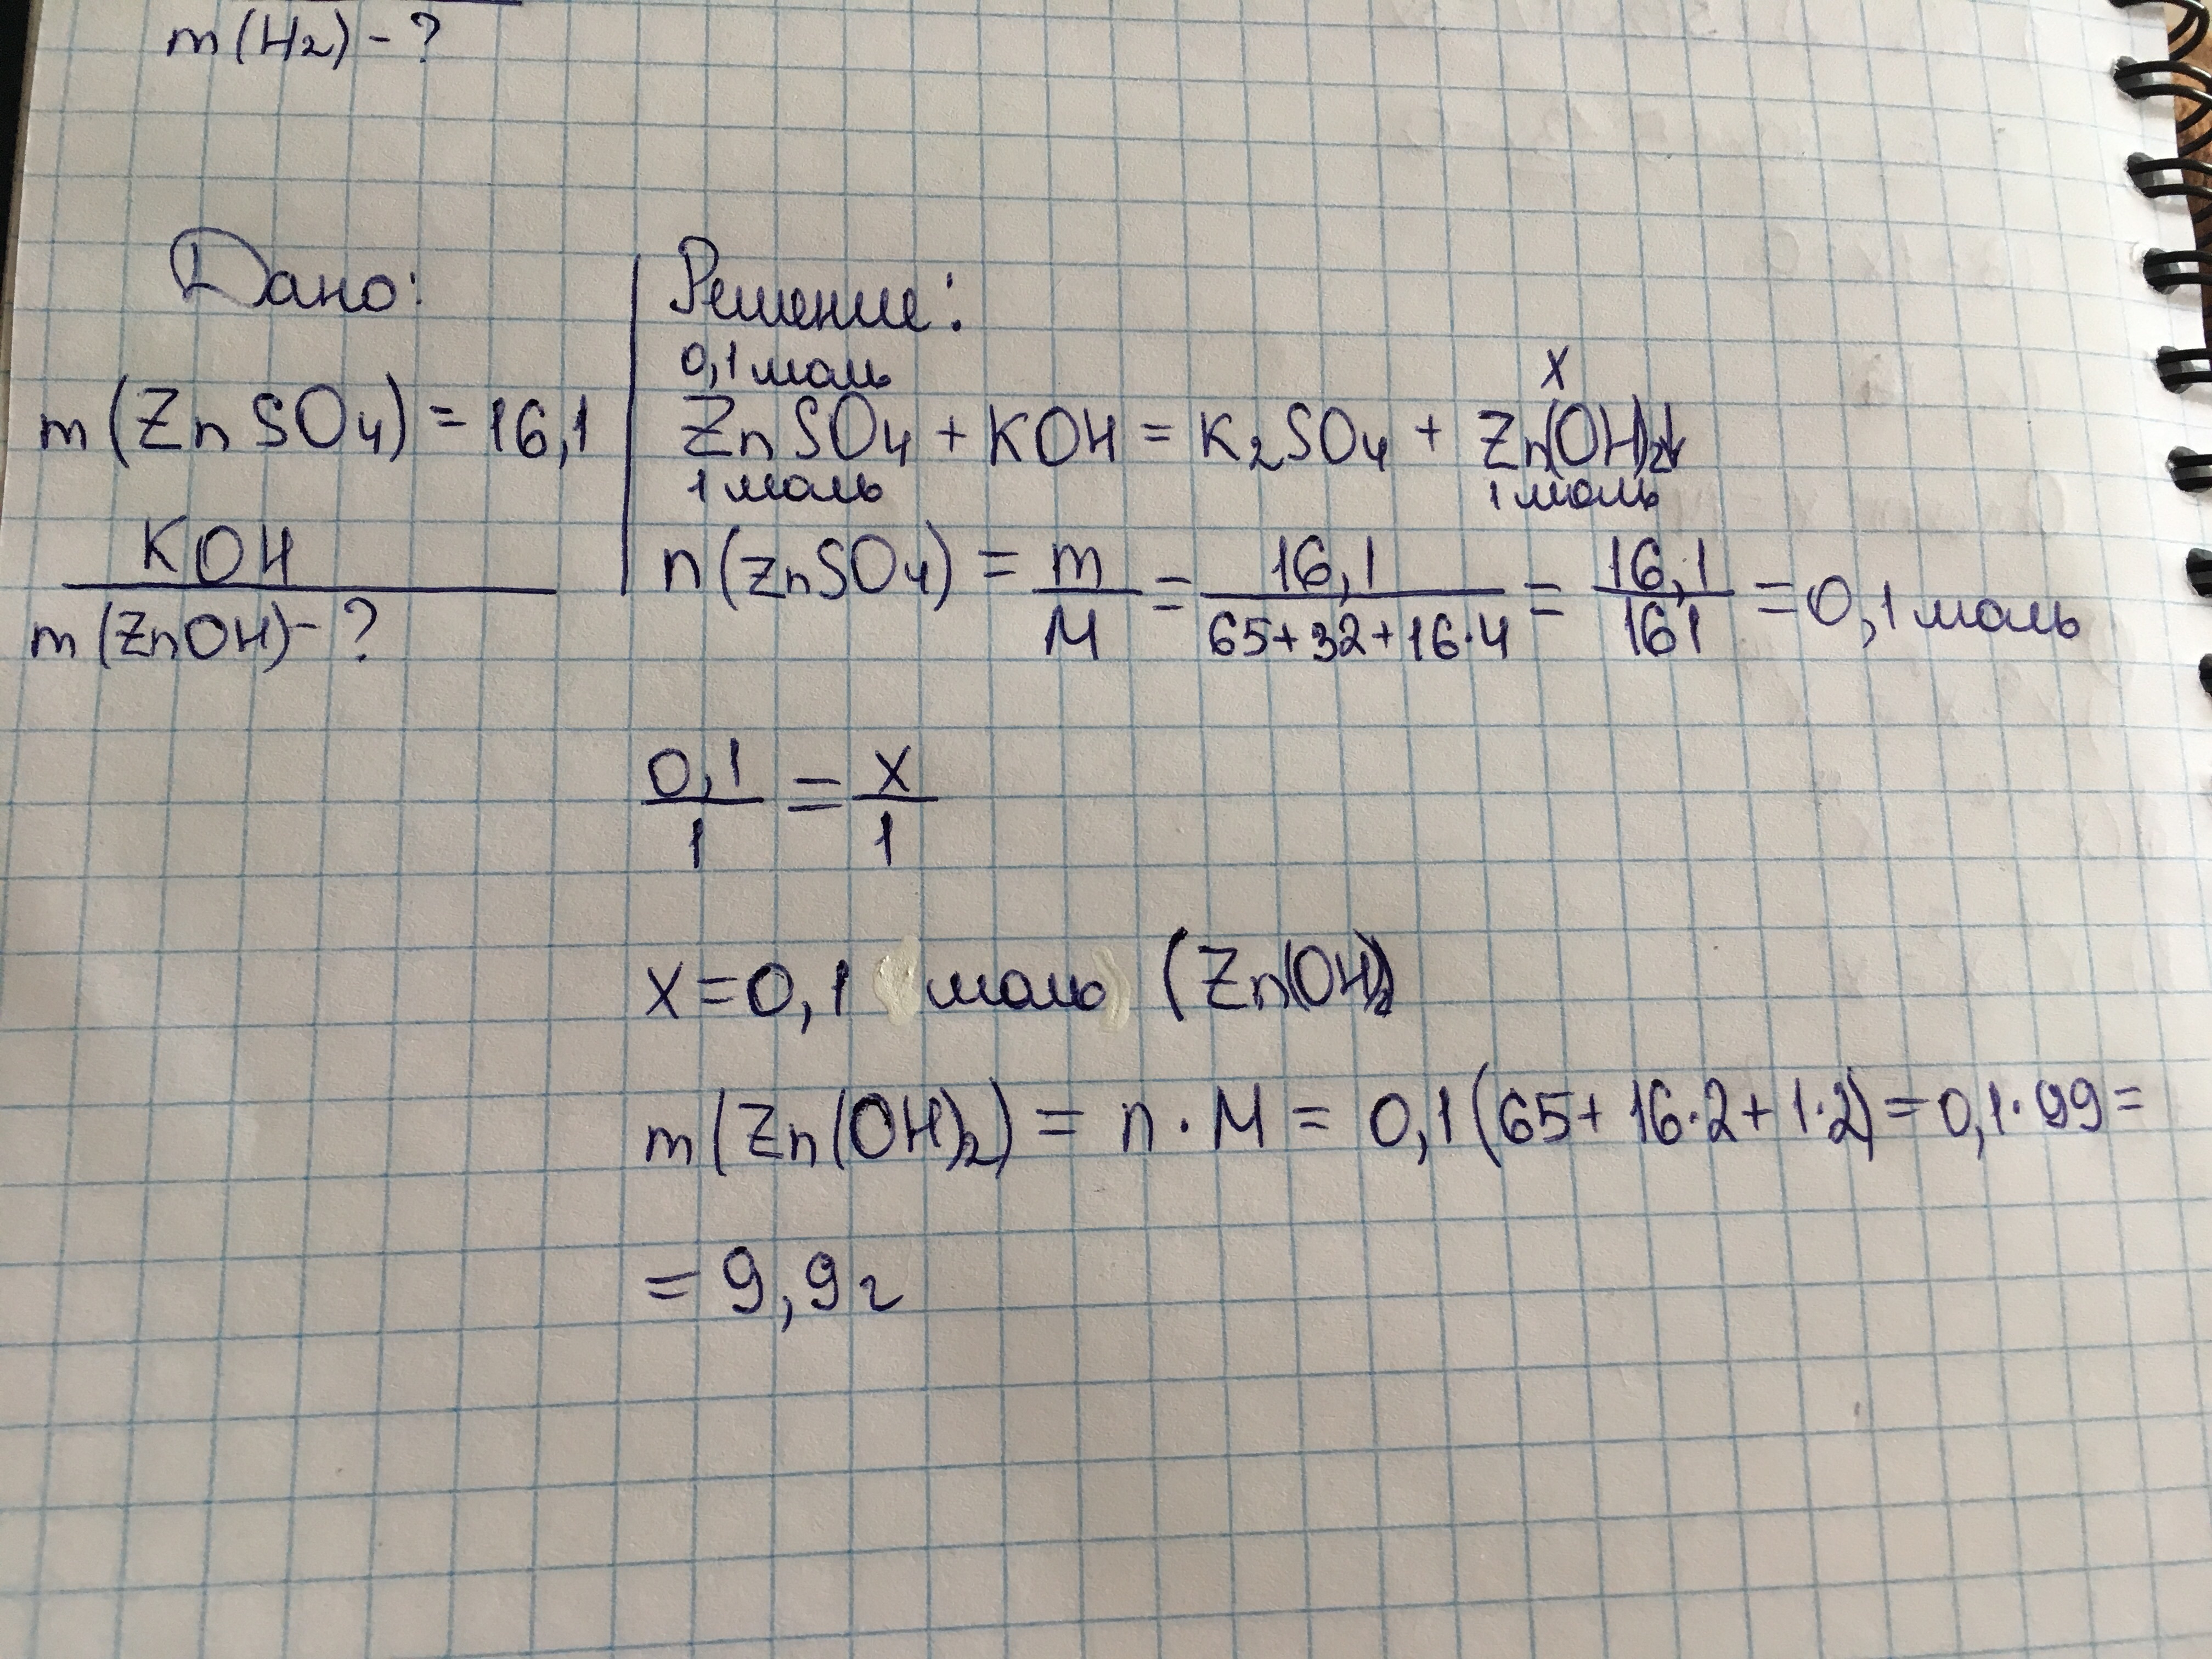 m(H₂) - ?
Дано:
m(ZnSO₄) = 16,1
KOH
m(ZnOH) - ?
Решение:
0,1 моль x
ZnSO₄ + KOH = K₂SO₄ + Zn(OH)₂↓
1 моль 1 моль
n(ZnSO₄) = m/M = 16,1/65+32+16·4 = 16,1/161 = 0,1 моль
0,1/1 = x/1
x = 0,1 моль (Zn(OH)₂)
m(Zn(OH)₂) = n · M = 0,1(65+16·2+1·2) = 0,1·99 =
= 9,9г